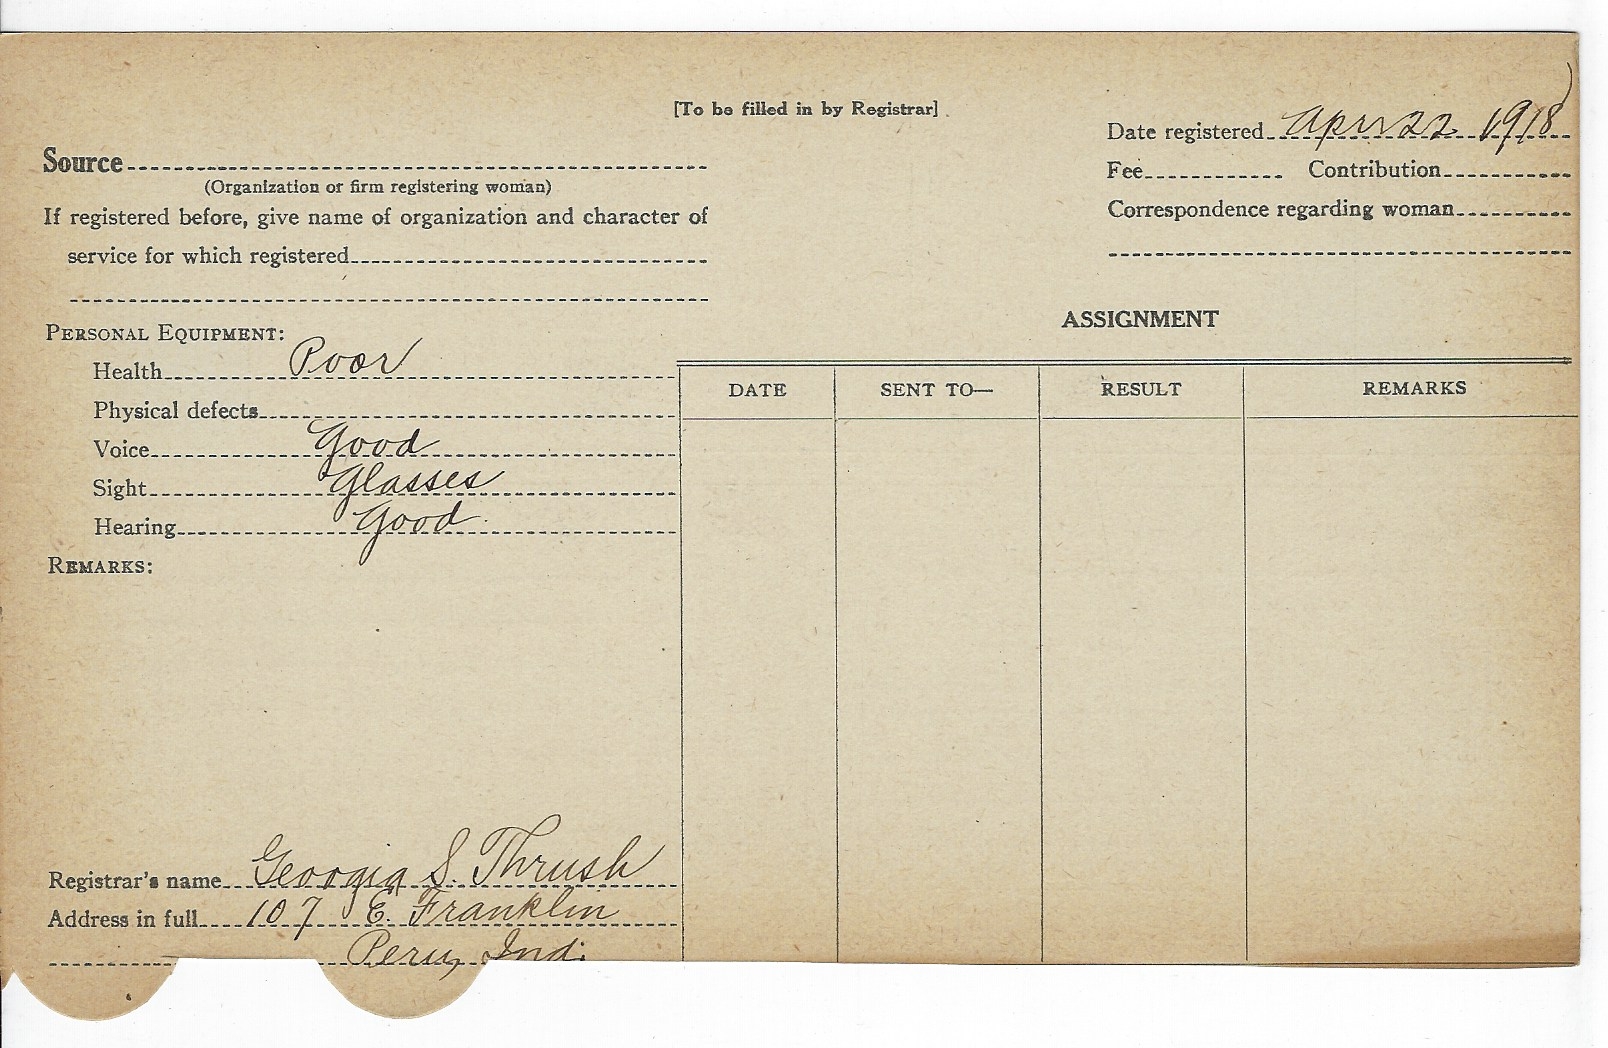 [To be filled in by Registrar]
Date registered Apr 22 1918
Source
(Organization or firm registering woman)
Fee Contribution
If registered before, give name of organization and character of
Correspondence regarding woman
service for which registered
ASSIGNMENT
PERSONAL EQUIPMENT:
Health Poor
DATE SENT TO— RESULT REMARKS
Physical defects
Voice Good
Sight Glasses
Hearing Good
REMARKS:
Registrar's name Georgia S. Thrush
Address in full 107 E. Franklin
Peru, Ind.